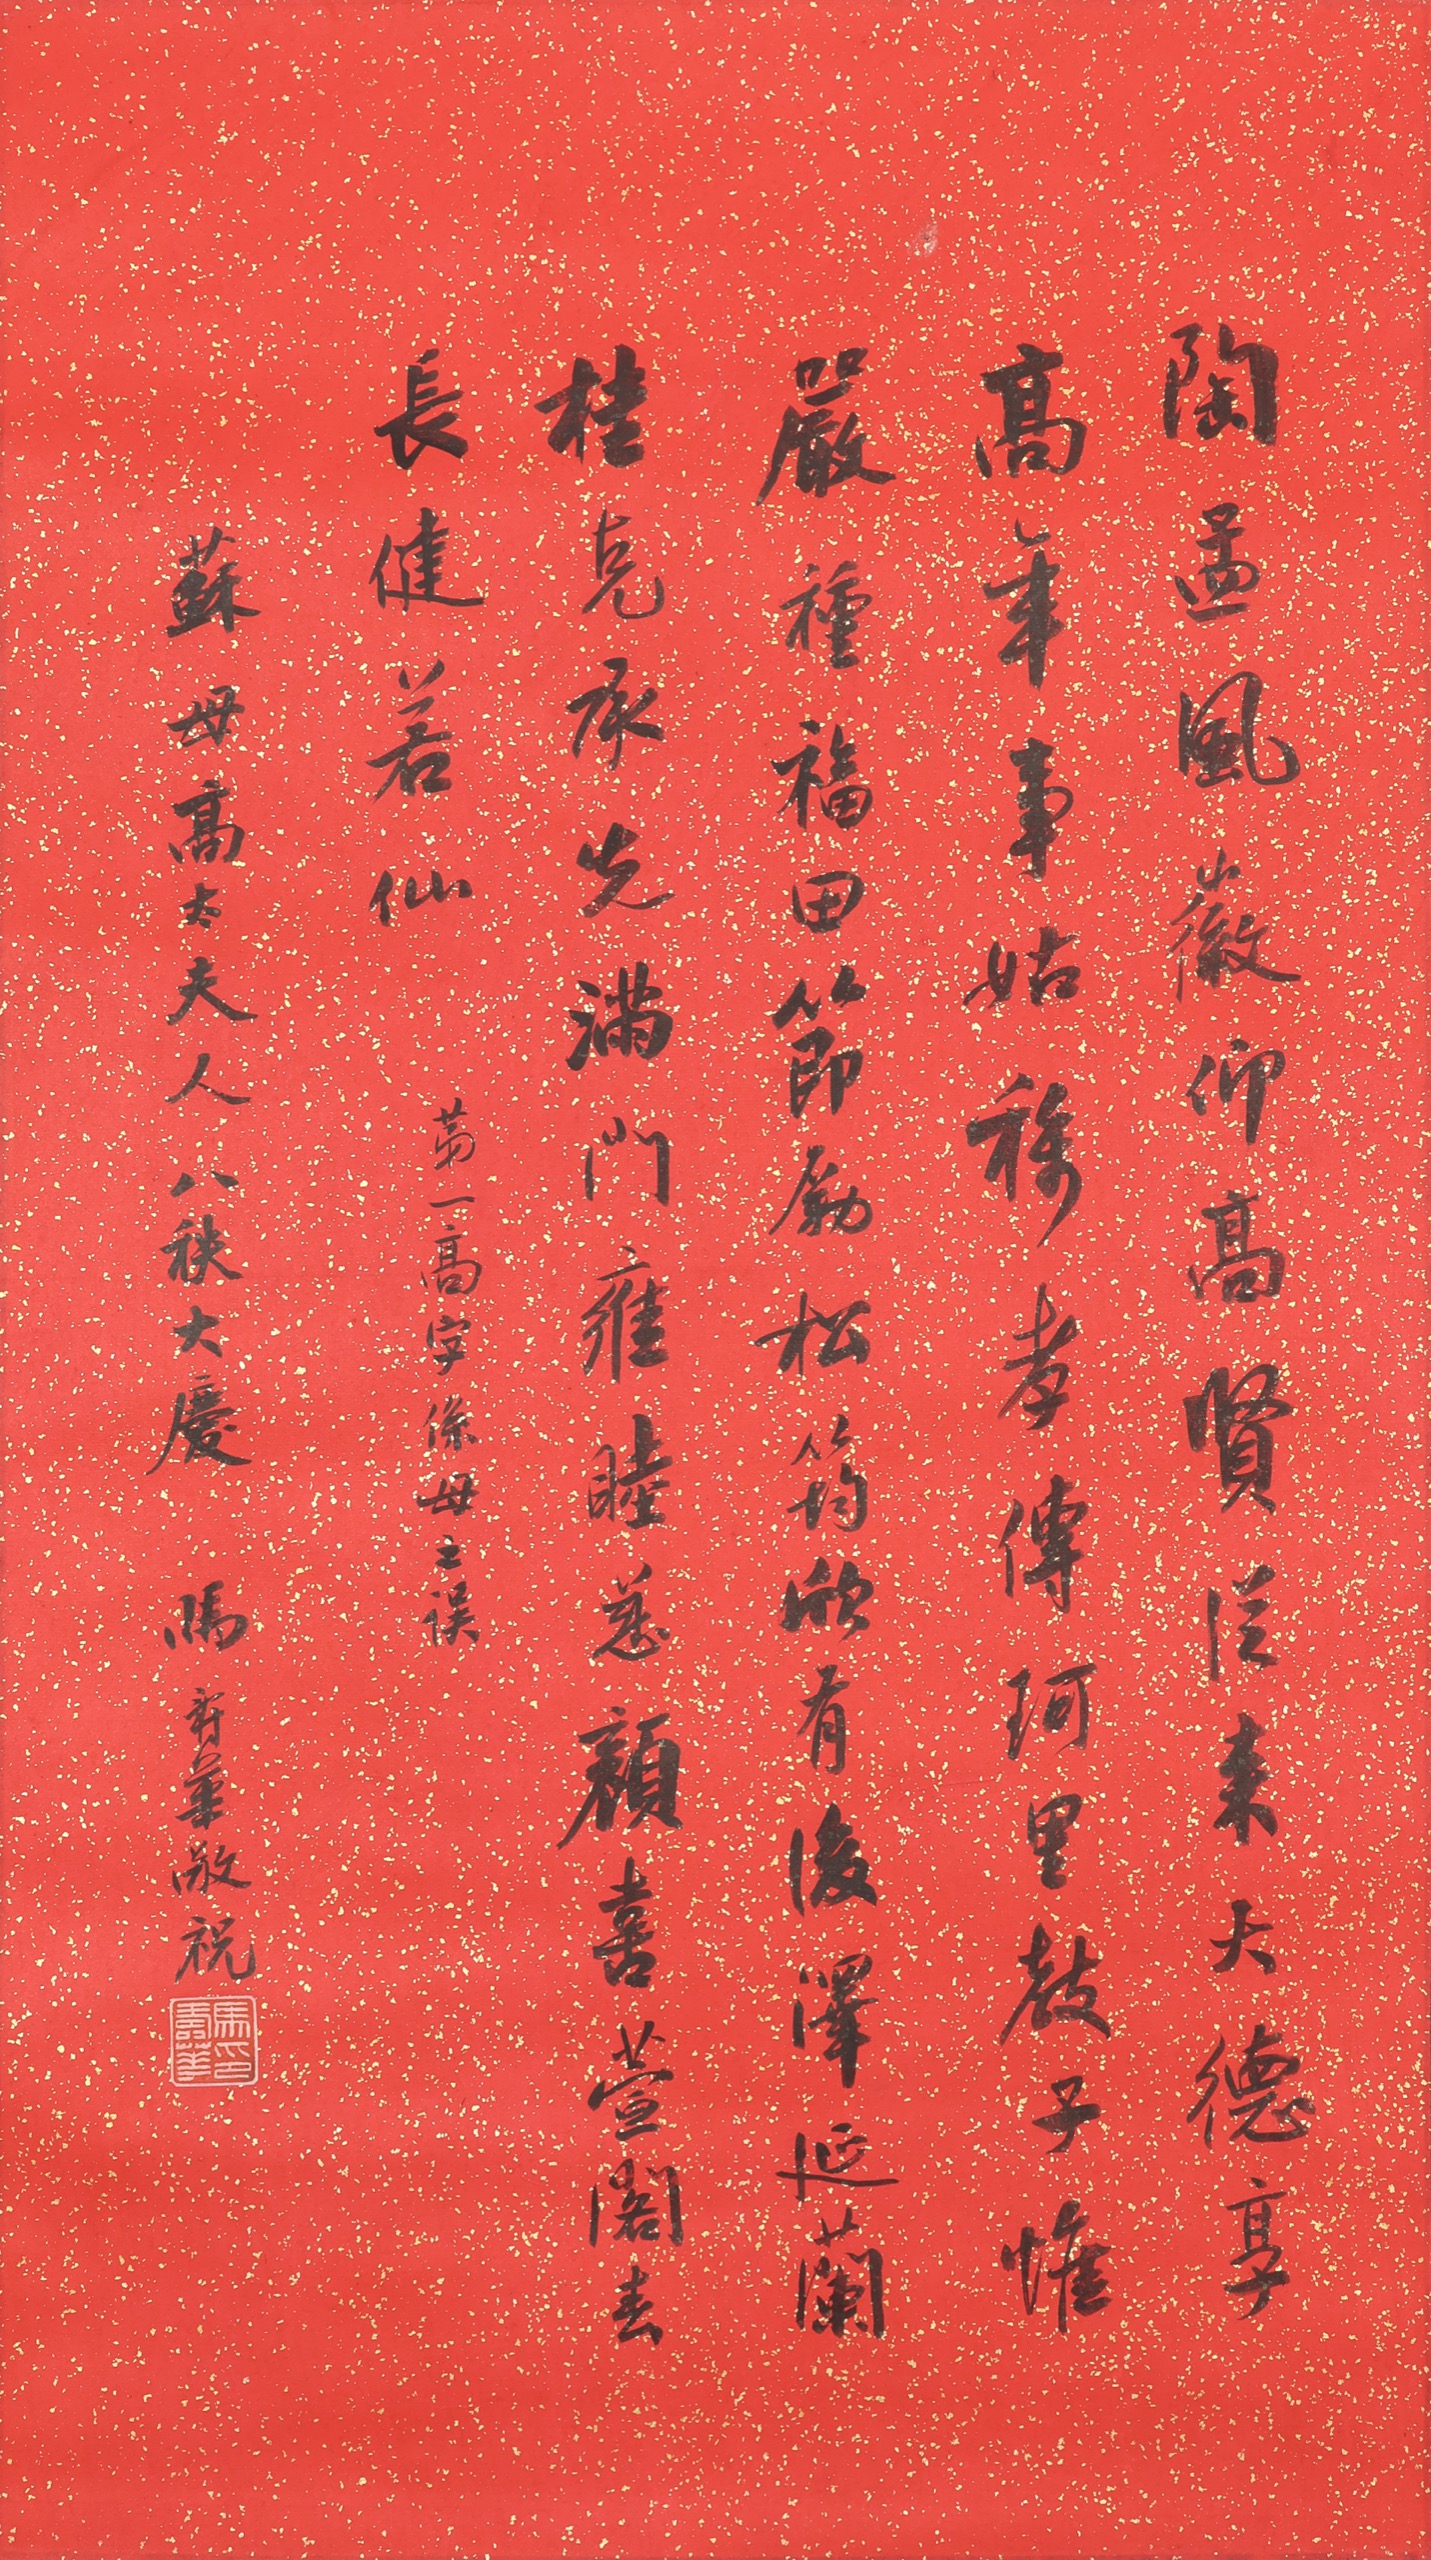 陶孟風徽仰高賢從來大德享
高年事姑移孝傳珂里教子惟
嚴種福田節勵松筠欣有後澤延蘭
桂克承先滿門雍睦慈顏喜萱閣長
長健若仙
苐一高字係母之误
蘇母高太夫人八秩大慶 馮壽華敬祝